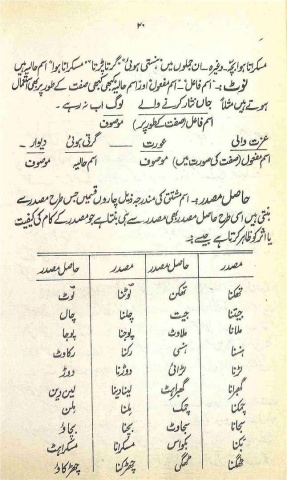 ۲۰
مسکراتا ہوا بچہ۔ وغیرہ۔ ان جملوں میں "ہنستی ہوئی" "گرتا پڑتا" "مسکراتا ہوا" اسم حالیہ ہیں
نوٹ:۔ "اسم فاعل"۔ "اسم مفعول" اور "اسم حالیہ" کبھی کبھی صفت کے طور پر بھی استعمال
ہوتے ہیں مثلاً جاں نثار کرنے والے لوگ اب نہ رہے۔
اسم فاعل (صفت کے طور پر) موصوف
عزت والی عورت — گرتی ہوئی دیوار
اسم مفعول (صفت کی صورت میں) موصوف اسم حالیہ موصوف
حاصل مصدر:۔ اسم مشتق کی مندرجہ ذیل چاروں قسمیں جس طرح مصدر سے
بنتی ہیں اسی طرح حاصل مصدر بھی مصدر سے ہی بنتا ہے جو مصدر کے کام کی کیفیت
یا اثر کو ظاہر کرتا ہے جیسے:۔
مصدر حاصل مصدر مصدر حاصل مصدر
تھکنا تھکن ٹوٹنا ٹوٹ
جیتنا جیت چلنا چال
ملانا ملاوٹ پوجنا پوجا
ہنسنا ہنسی رکنا رکاوٹ
لڑنا لڑائی دوڑنا دوڑ
گھبرانا گھبراہٹ لینا دینا لین دین
چمکنا چمک ملنا ملن
سجانا سجاوٹ بچنا بچاؤ
بکنا بکواس مسکرانا مسکراہٹ
ٹھگنا ٹھگی چھڑکنا چھڑکاؤ